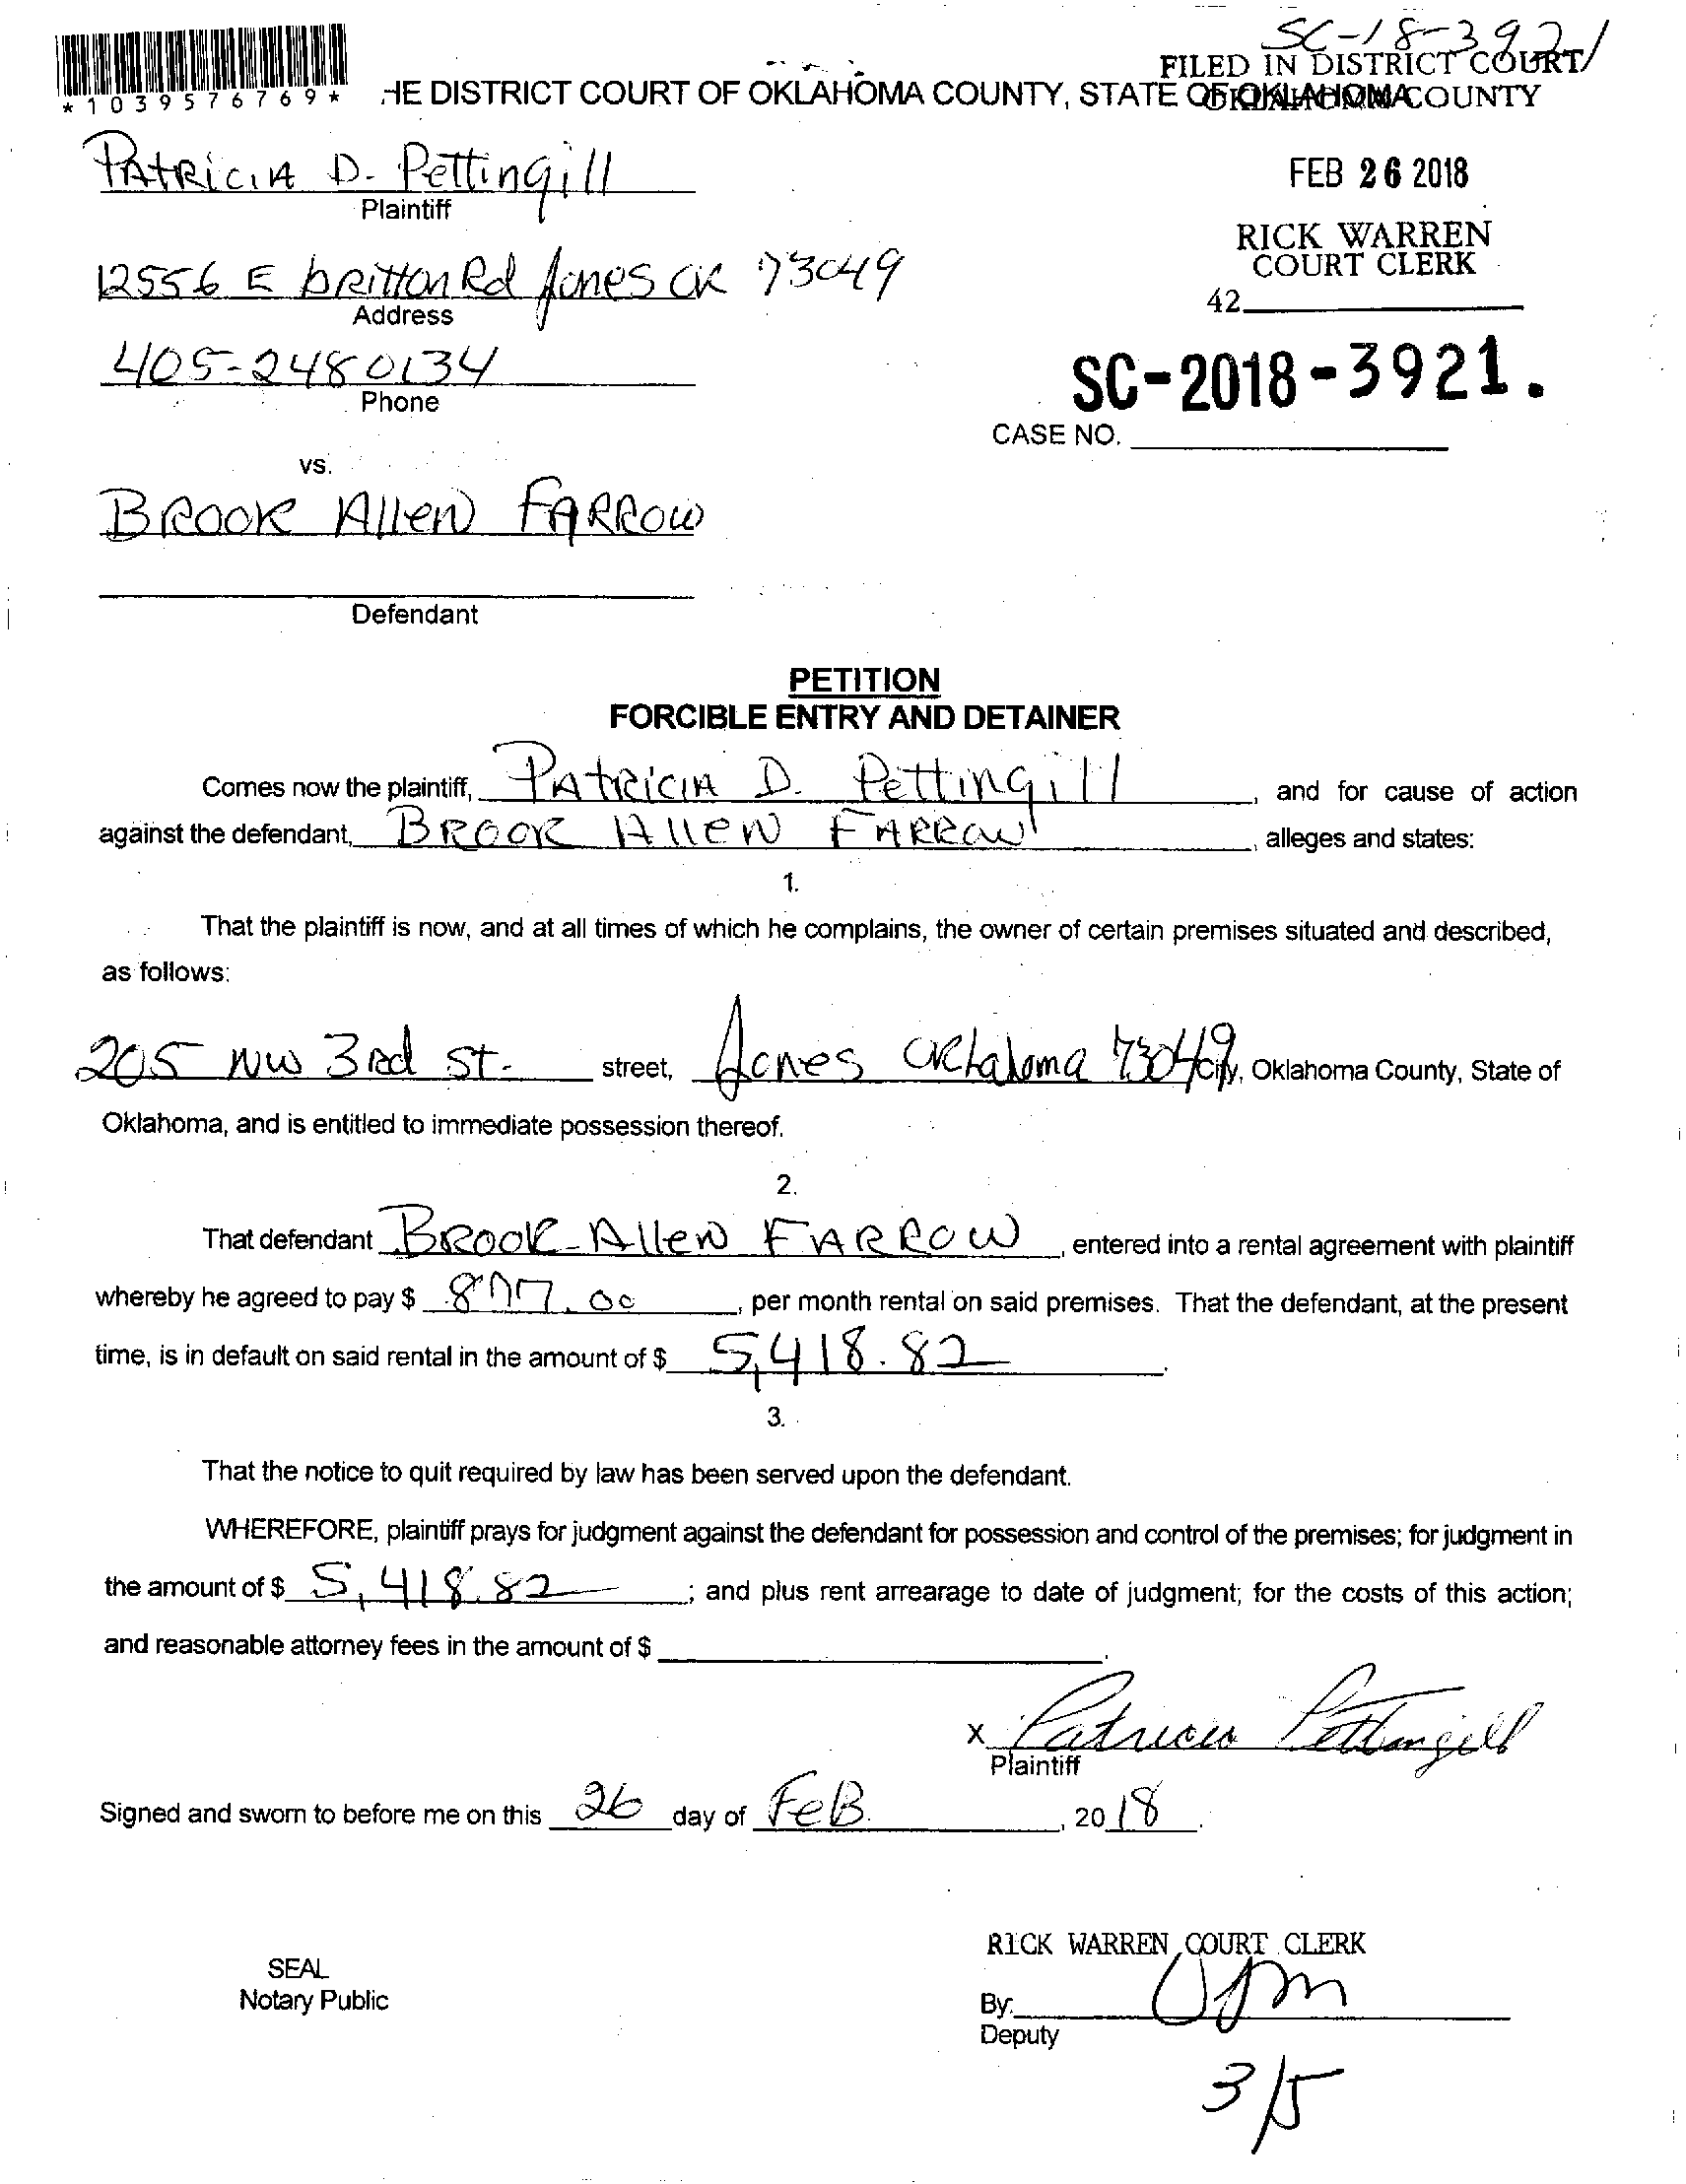 SC-18-3921
FILED IN DISTRICT COURT
*1039576769* HE DISTRICT COURT OF OKLAHOMA COUNTY, STATE OF OKLAHOMA
OKLAHOMA COUNTY
PATRICIA D. Pettingill
Plaintiff
FEB 26 2018
RICK WARREN
COURT CLERK
12556 E BRITTON Rd Jones OK 73049
Address
42
405-2480134
Phone
SC-2018-3921.
CASE NO.
vs.
BROOK Allen FARROW
Defendant
PETITION
FORCIBLE ENTRY AND DETAINER
Comes now the plaintiff, PATRICIA D. Pettingill, and for cause of action
against the defendant, BROOK Allen FARROW, alleges and states:
1.
That the plaintiff is now, and at all times of which he complains, the owner of certain premises situated and described,
as follows:
205 NW 3Rd St. street, Jones Oklahoma 73049 City, Oklahoma County, State of
Oklahoma, and is entitled to immediate possession thereof.
2.
That defendant BROOK Allen FARROW, entered into a rental agreement with plaintiff
whereby he agreed to pay $ , per month rental on said premises. That the defendant, at the present
time, is in default on said rental in the amount of $ 5,418.82.
3.
That the notice to quit required by law has been served upon the defendant.
WHEREFORE, plaintiff prays for judgment against the defendant for possession and control of the premises; for judgment in
the amount of $ 5,418.82; and plus rent arrearage to date of judgment; for the costs of this action;
and reasonable attorney fees in the amount of $ .
x Patricia Pettingill
Plaintiff
Signed and sworn to before me on this 26 day of FeB., 2018.
RICK WARREN COURT CLERK
SEAL
Notary Public
By:
Deputy
3/5